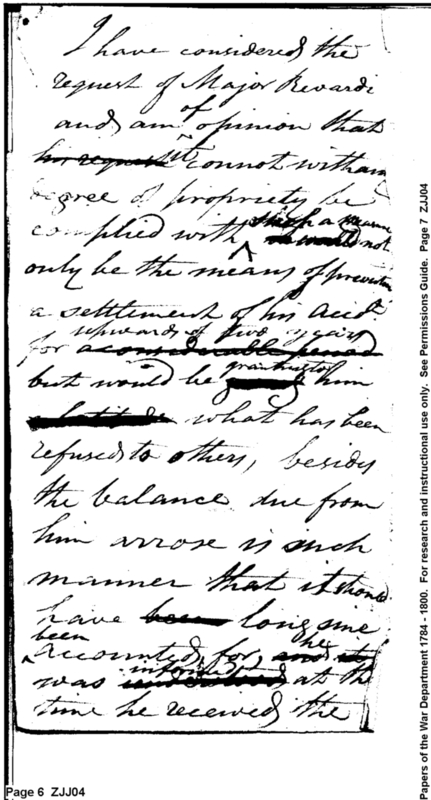 I have considered the
request of Major Revardi
of
and am opinion that
his request it connot with any
degree of propriety be
such a measure
complied with would not
only be the means of preventin
a settlement of his Accts
upwards of two years
for a considerable period
but would be granting to him
a latitude what has been
refused to others, besides
the balance due from
him arrose is such
manner that it should
have been long sine
been
accounted for, and he
was intrusted at the
time he received the
Page 6 ZJJ04
Papers of the War Department 1784 - 1800. For research and instructional use only. See Permissions Guide. Page 7 ZJJ04